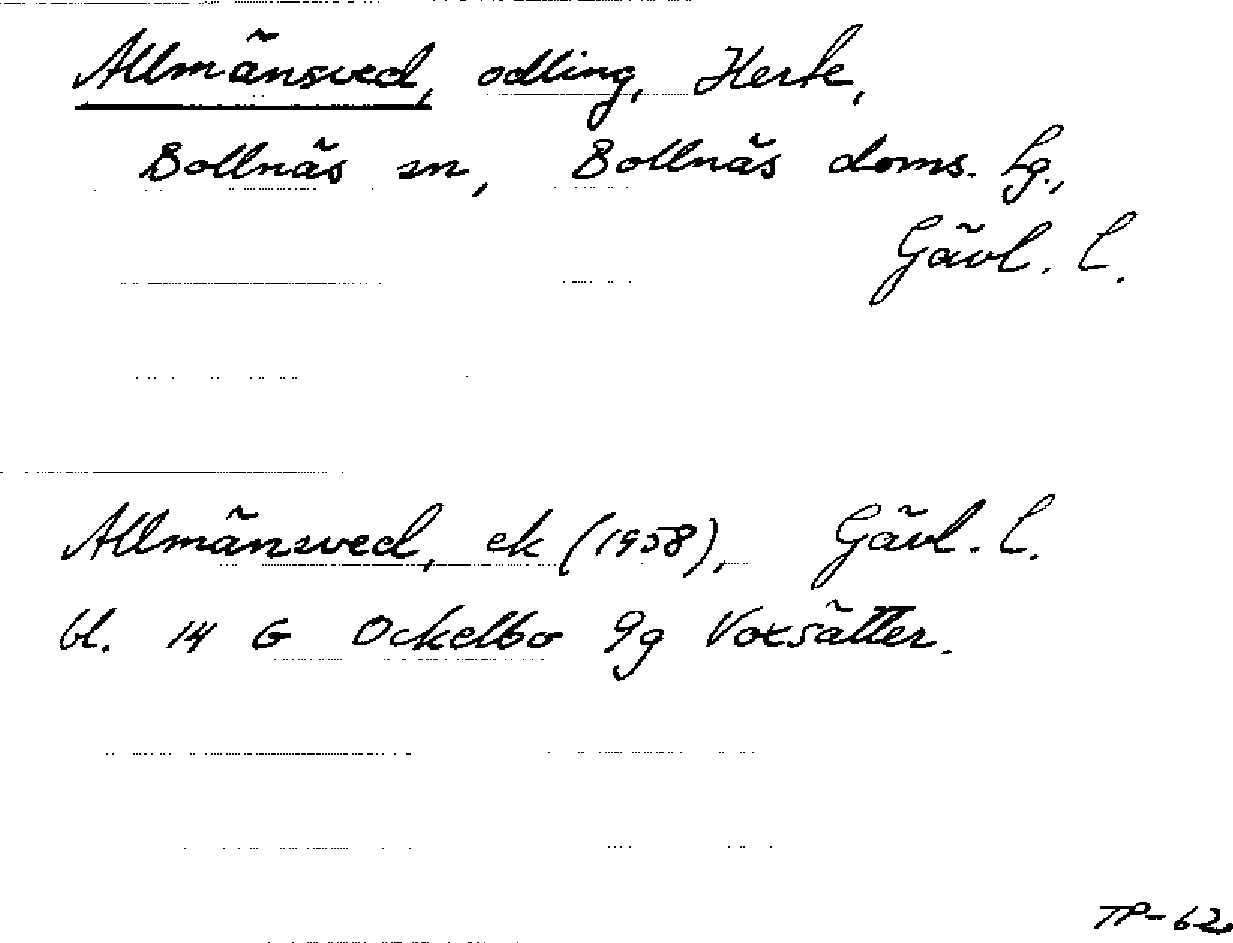 Allmänsved, odling, Herte,
Bollnäs sn, Bollnäs doms. lg.,
Gävl. l.
Allmänsved, ek (1958), Gävl. l.
bl. 14 G Ockelbo 9g Voxsätter.
TP-62